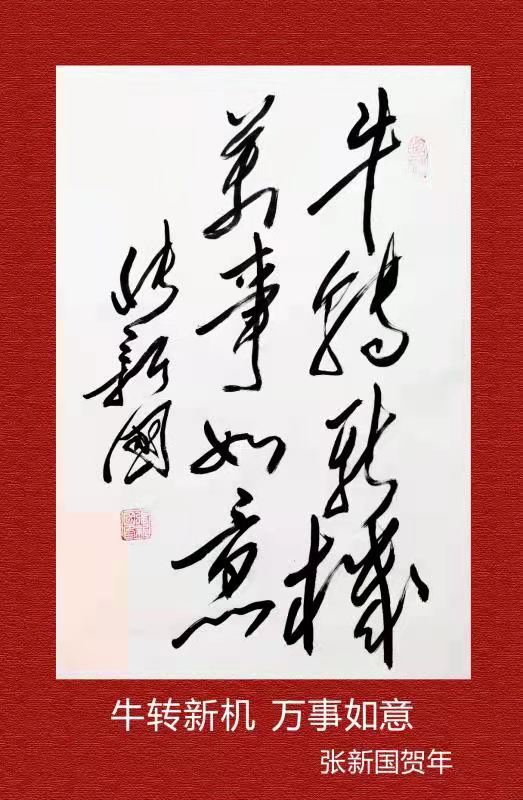 牛轉新機
萬事如意
張新國
牛转新机 万事如意
张新国贺年